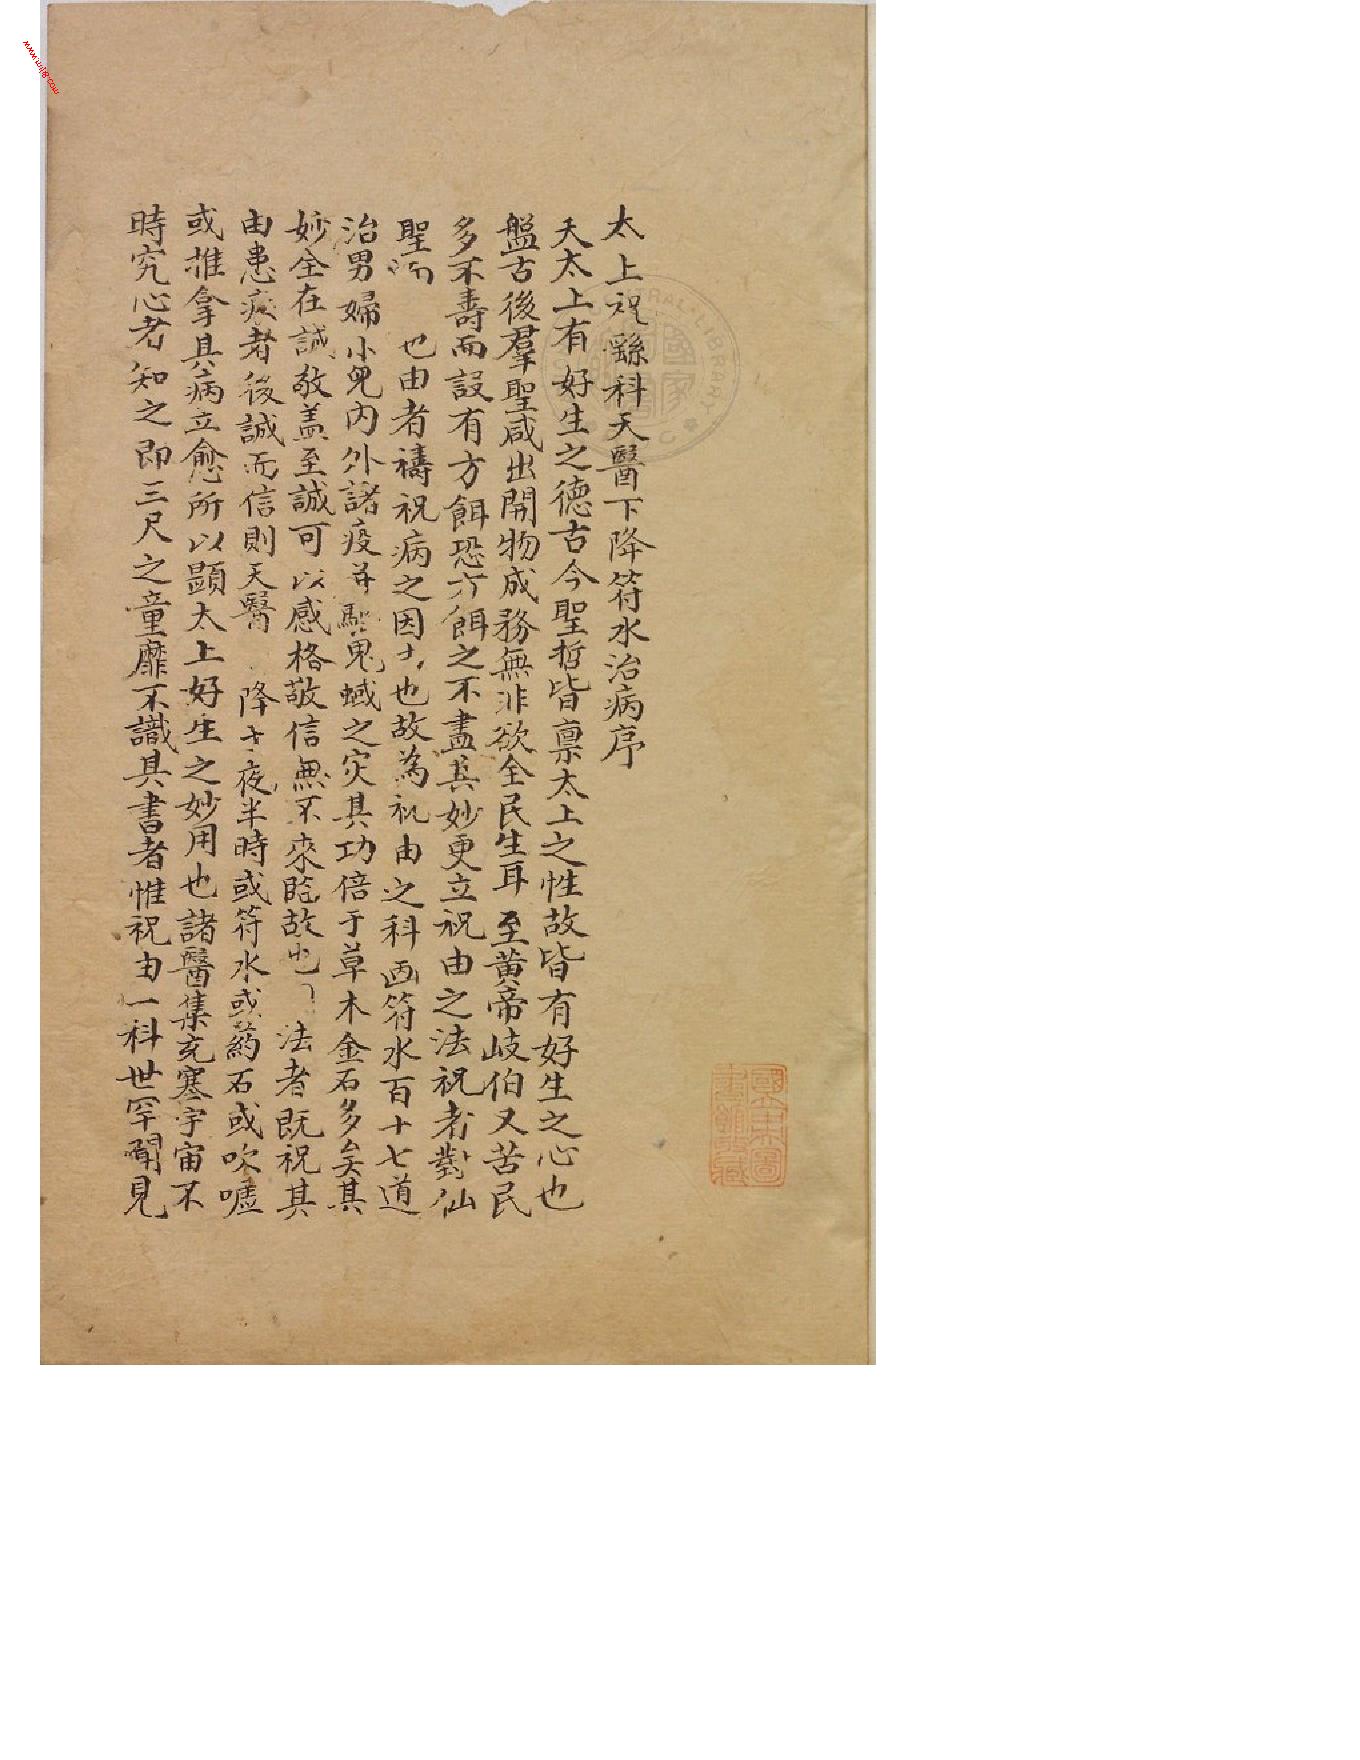 太上祝繇科天醫下降符水治病序
夫太上有好生之德古今聖哲皆禀太上之性故皆有好生之心也
盤古後羣聖咸出開物成務無非欲全民生耳至黄帝岐伯又苦民
多不壽而設有方餌恐方餌之不盡其妙更立祝由之法祝者對仙
聖而 也由者禱祝病之因 也故為祝由之科画符水百十七道
治男婦小兒内外諸疫并驅鬼蜮之灾其功倍于草木金石多矣其
妙全在誠敬盖至誠可以感格敬信無不來 故也 法者既祝其
由患疾者後誠而信則天醫 降 夜半時或符水或葯石或吹嘘
或推拿其病立愈所以顕太上好生之妙用也諸醫集充塞宇宙不
時究心者知之即三尺之童靡不識其書者惟祝由一科世罕聞見
國立中央圖書館收藏
CENTRAL LIBRARY
www.wij8.com